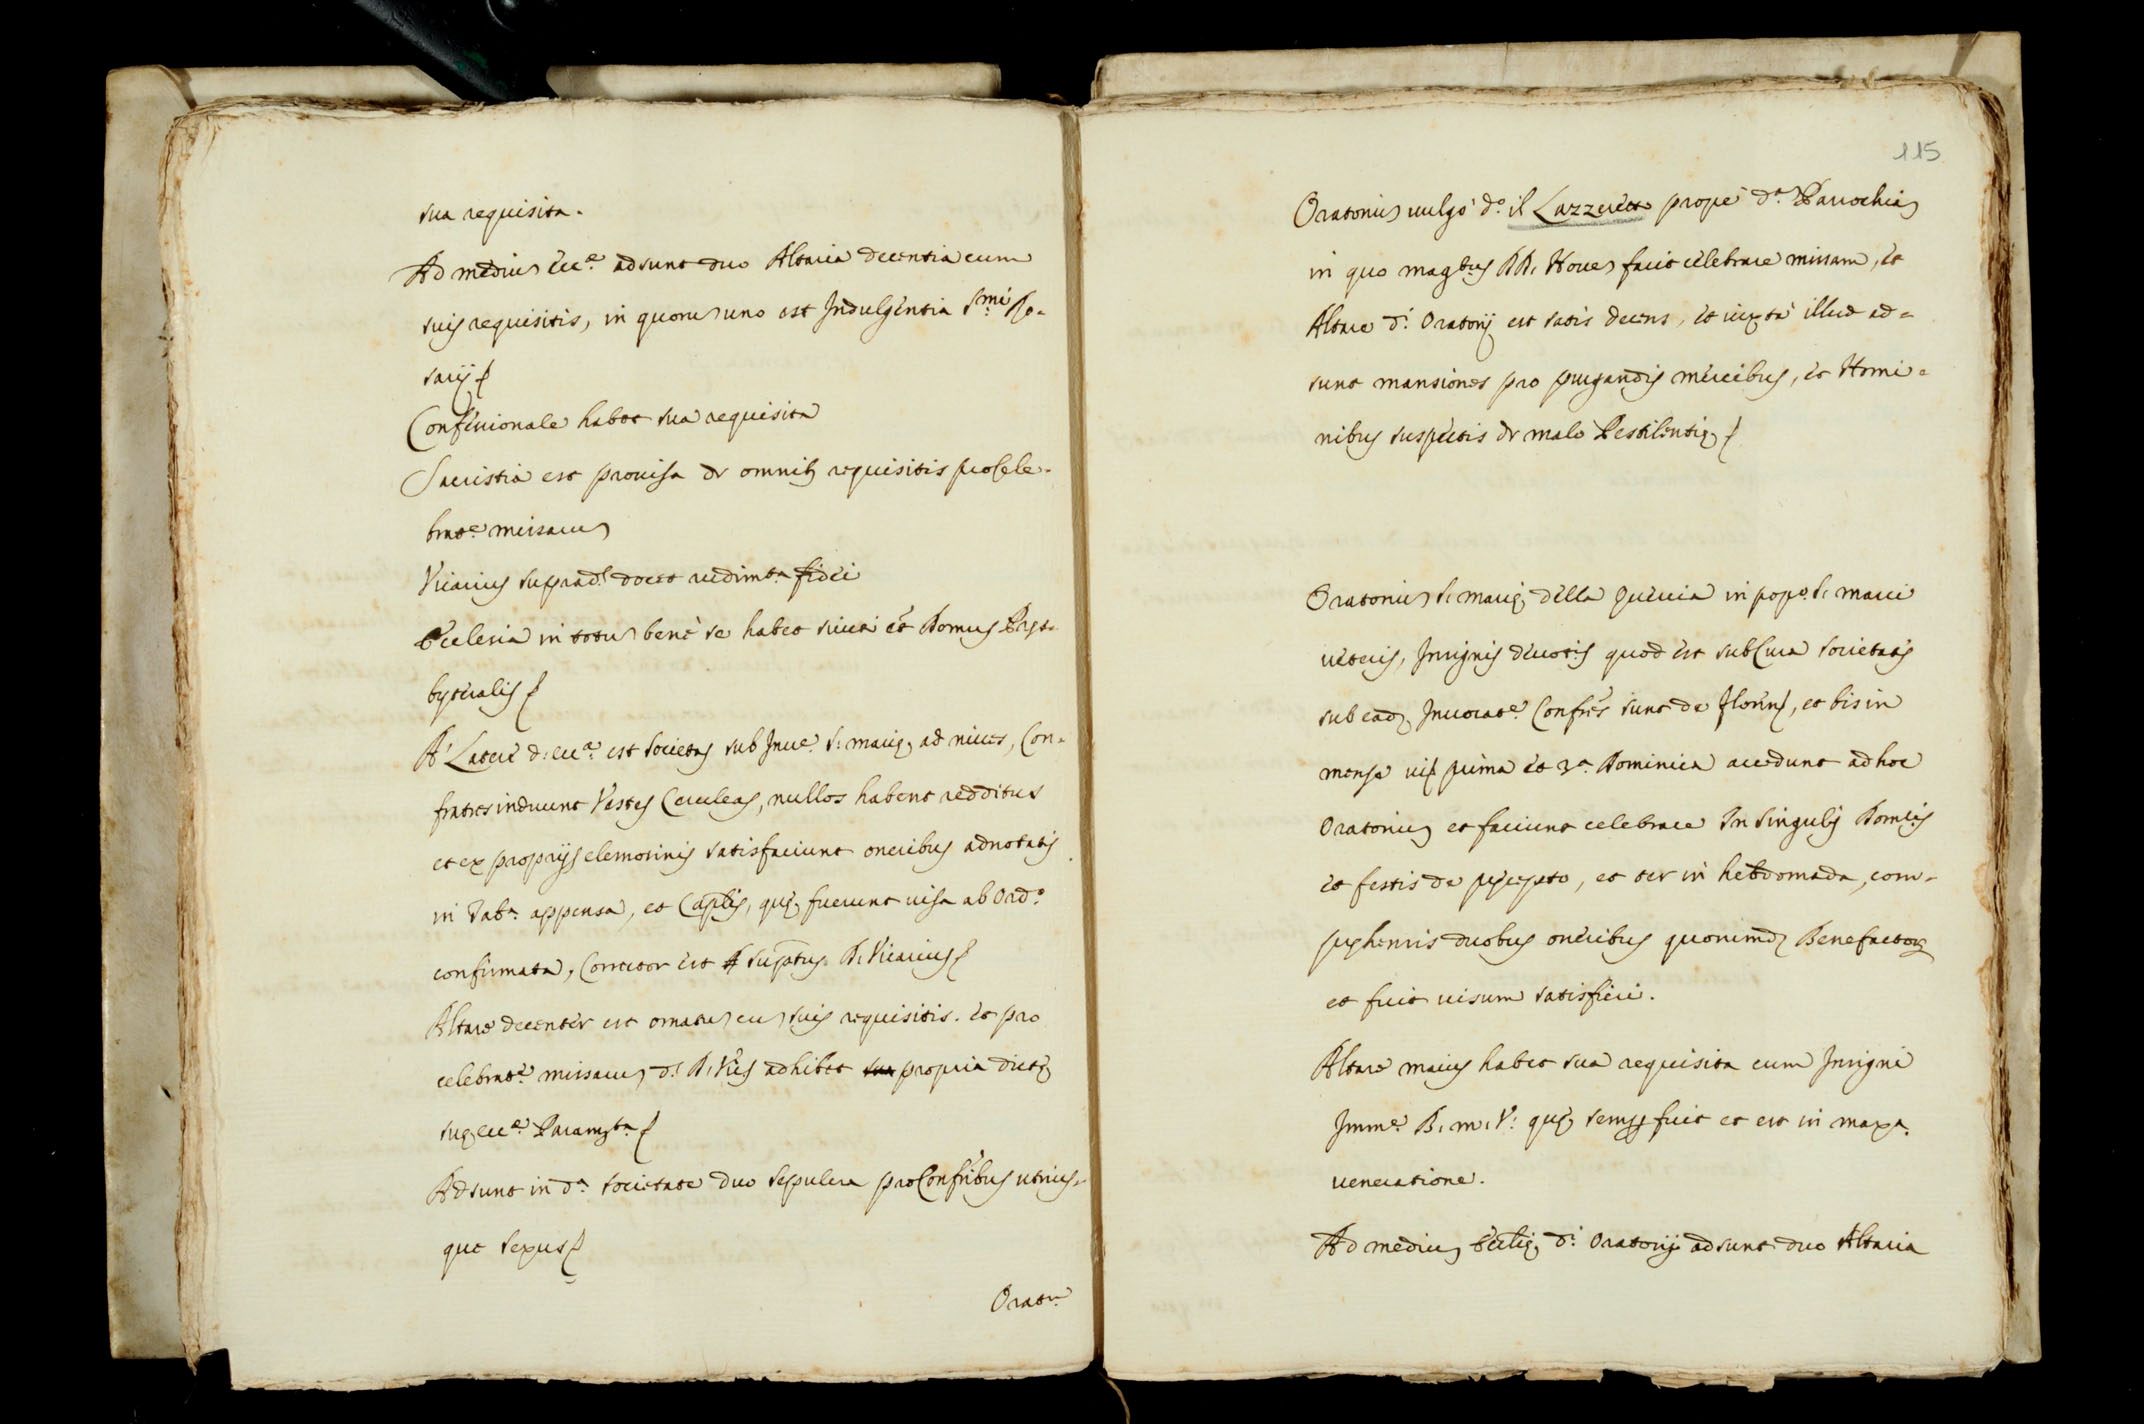 sua requisita.
Ad mediu Ecc.ᵉ adsunt duo Altaria decentia cum
suis requisitis, in quoru uno est Indulgentia S.ᵐⁱ Ro-
sarij
Confessionale habet sua requisita
Sacristia est provisa de omnib; requisitis pro Cele-
brat.ᵉ missaru
Vicarius suprad.ˢ docet rudimt.ᵃ fidei
Ecclesia in totu bene se habet sicuti et Domus Presb-
byteralis
A' Latere d: ecc.ᵃ est societas sub Invc.ᵉ S: marię ad nives, Con-
fratres induunt Vestes Ceruleas, nullos habent redditus
et ex proprijs elemosinis satisfaciunt oneribus adnotatis
in Tab.ᵃ appensa, et Caplis, quę fuerunt visa ab Ord.º
confirmata, Corrector est supstus R. Vicarius
Altare decenter est ornatu cu suis requisitis. et pro
celebrat.ᵉ missaru d.ˢ R. Vics adhibet propria dictę
suę ecc.ᵉ Paramt.ᵃ
Adsunt in d.ᵃ societate duo sepulcra pro Confribus utrius-
que sexus
Orat.ᵐ
115
Oratoriu vulgo d.º il Lazzeretto prope d.ᵃ Parrochia
in quo magtus RR. Houes facit celebrare missam, et
Altare d.ⁱ Oratorij est satis decens, et iuxta illud ad-
sunt mansiones pro purgandis mercibus, et Homi-
nibus suspectis de malo Pestilentię
Oratoriu S: marię della Quercia in pop.º S: marci
veteris, Insignis devotis quod est sub Cura societatis
sub eadę Invocat.ᵉ Confres sunt de Floren, et bis in
mense vis prima et 3.ᵃ Dominica accedunt ad hoc
Oratoriu et faciunt celebrare In singulis Domcis
et festis de precepto, et ter in hebdomada, com-
prehensis duobus oneribus quorumd Benefactor
et fuit visum satisfieri.
Altare maius habet sua requisita cum Insigni
Imm.ᵉ B. m. V. quę semp fuit et est in max.ᵃ
veneratione.
Ad mediu Eccleę d.ⁱ Oratorij adsunt duo Altaria